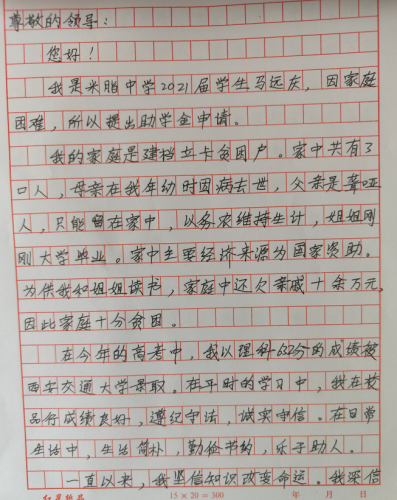 尊敬的领导：
您好！
我是米脂中学2021届学生马远庆，因家庭
困难，所以提出助学金申请。
我的家庭是建档立卡贫困户。家中共有3
口人，母亲在我年幼时因病去世，父亲是聋哑
人，只能留在家中，以务农维持生计，姐姐刚
刚大学毕业。家中主要经济来源为国家资助。
为供我和姐姐读书，家庭中还欠亲戚十余万元，
因此家庭十分贫困。
在今年的高考中，我以理科632分的成绩被
西安交通大学录取。在平时的学习中，我在校
品行成绩良好，遵纪守法，诚实守信。在日常
生活中，生活简朴，勤俭节约，乐于助人。
一直以来，我坚信知识改变命运。我深信
15×20=300 年 月 日